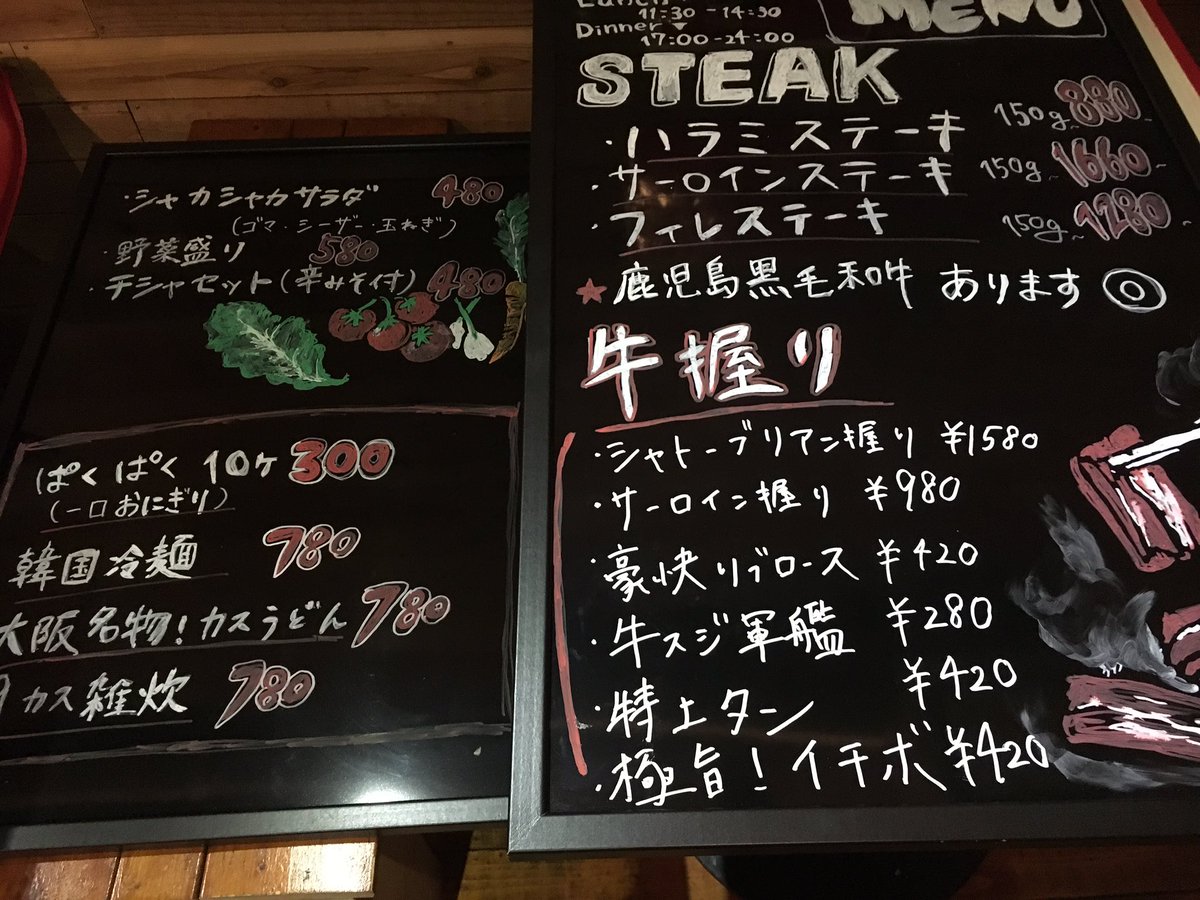 ・シャカシャカサラダ 480
(ゴマ・シーザー・玉ねぎ)
・野菜盛り 580
・チシャセット(辛みそ付) 480
ぱくぱく 10ケ 300
(一口おにぎり)
韓国冷麺 780
大阪名物!カスうどん 780
カス雑炊 780
Lunch
11:30-14:30
Dinner▼
17:00-24:00
MENU
STEAK
・ハラミステーキ 150g~ 880
・サーロインステーキ 150g~ 1660~
・フィレステーキ 150g~ 1280~
★鹿児島黒毛和牛 あります◎
牛握り
・シャトーブリアン握り ¥1580
・サーロイン握り ¥980
・豪快リブロース ¥420
・牛スジ軍艦 ¥280
・特上タン ¥420
・極旨!イチボ ¥420